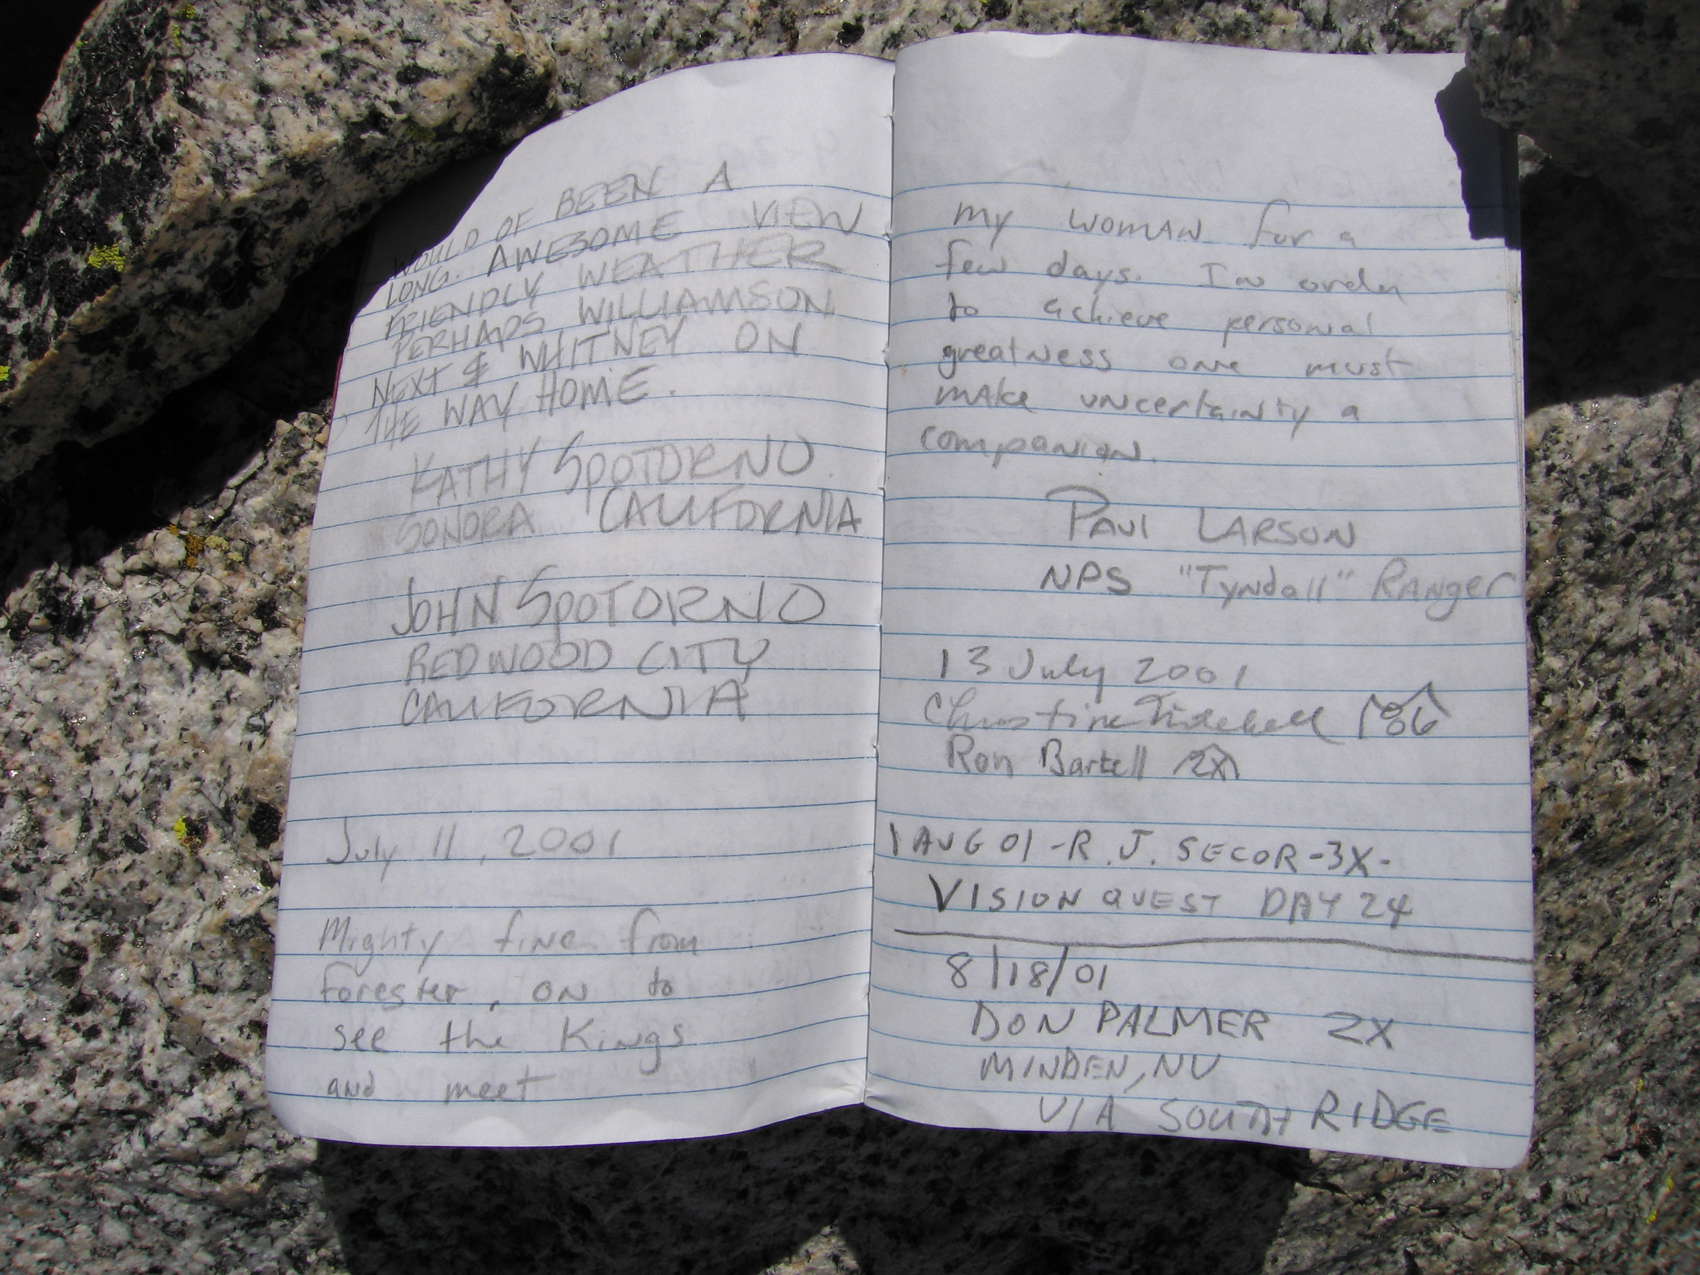 WOULD OF BEEN A
LONG. AWESOME VIEW
FRIENDLY WEATHER
PERHAPS WILLIAMSON
NEXT & WHITNEY ON
THE WAY HOME.
KATHY SPOTORNO
SONORA CALIFORNIA
JOHN SPOTORNO
REDWOOD CITY
CALIFORNIA
July 11, 2001
Mighty fine from
forester, on to
see the Kings
and meet
my woman for a
few days. In order
to achieve personal
greatness one must
make uncertainty a
companion.
PAUL LARSON
NPS "Tyndall" Ranger
13 July 2001
Christine
Ron Bartell 2X
1 AUG 01 -R.J. SECOR -3X-
VISION QUEST DAY 24
8/18/01
DON PALMER 2X
MINDEN, NV
VIA SOUTH RIDGE